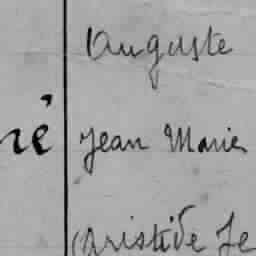 Auguste
né Jean Marie
Aristide Je